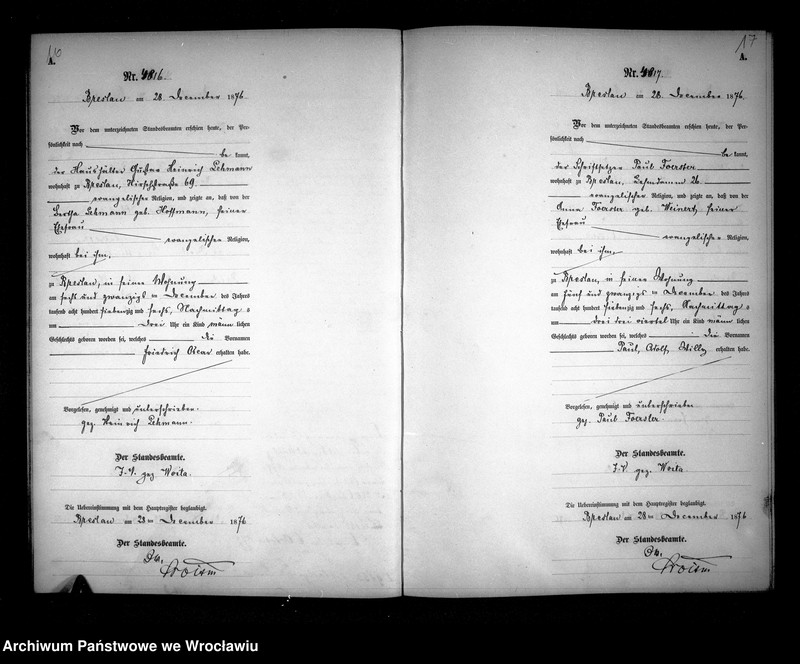 16
A.
Nr. 4816.
Breslau am 28. December 1876
Vor dem unterzeichneten Standesbeamten erschien heute, der Per-
sönlichkeit nach
be kannt,
der Haushälter Gustav Heinrich Lehmann
wohnhaft zu Breslau, Hirschstraße 69.
evangelischer Religion, und zeigte an, daß von der
Bertha Lehmann geb. Hoffmann, seiner
Ehefrau
evangelischer Religion,
wohnhaft bei ihm,
zu Breslau, in seiner Wohnung
am sechs und zwanzigs ten December des Jahres
tausend acht hundert siebenzig und sechs, Nachmittag s
um drei Uhr ein Kind männ lichen
Geschlechts geboren worden sei, welches die Vornamen
Friedrich Oscar erhalten habe.
Vorgelesen, genehmigt und unterschrieben.
gez. Heinrich Lehmann.
Der Standesbeamte.
J. V. gez. Woita.
Die Uebereinstimmung mit dem Hauptregister beglaubigt.
Breslau am 28ten December 1876
Der Standesbeamte.
17
A.
Nr. 4817.
Breslau am 28. December 1876.
Vor dem unterzeichneten Standesbeamten erschien heute, der Per-
sönlichkeit nach
be kannt,
der Schriftsetzer Paul Foerster
wohnhaft zu Breslau, Lehmdamm 26.
evangelischer Religion, und zeigte an, daß von der
Anna Foerster geb. Weinert, seiner
Ehefrau
evangelischer Religion,
wohnhaft bei ihm,
zu Breslau, in seiner Wohnung
am fünf und zwanzigs ten December des Jahres
tausend acht hundert siebenzig und sechs, Nachmittag s
um drei drei viertel Uhr ein Kind männ lichen
Geschlechts geboren worden sei, welches die Vornamen
Paul, Adolf, Willy erhalten habe.
Vorgelesen, genehmigt und unterschrieben
gez. Paul Foerster.
Der Standesbeamte.
J. V. gez. Woita.
Die Uebereinstimmung mit dem Hauptregister beglaubigt.
Breslau am 28ten December 1876
Der Standesbeamte.
Archiwum Państwowe we Wrocławiu